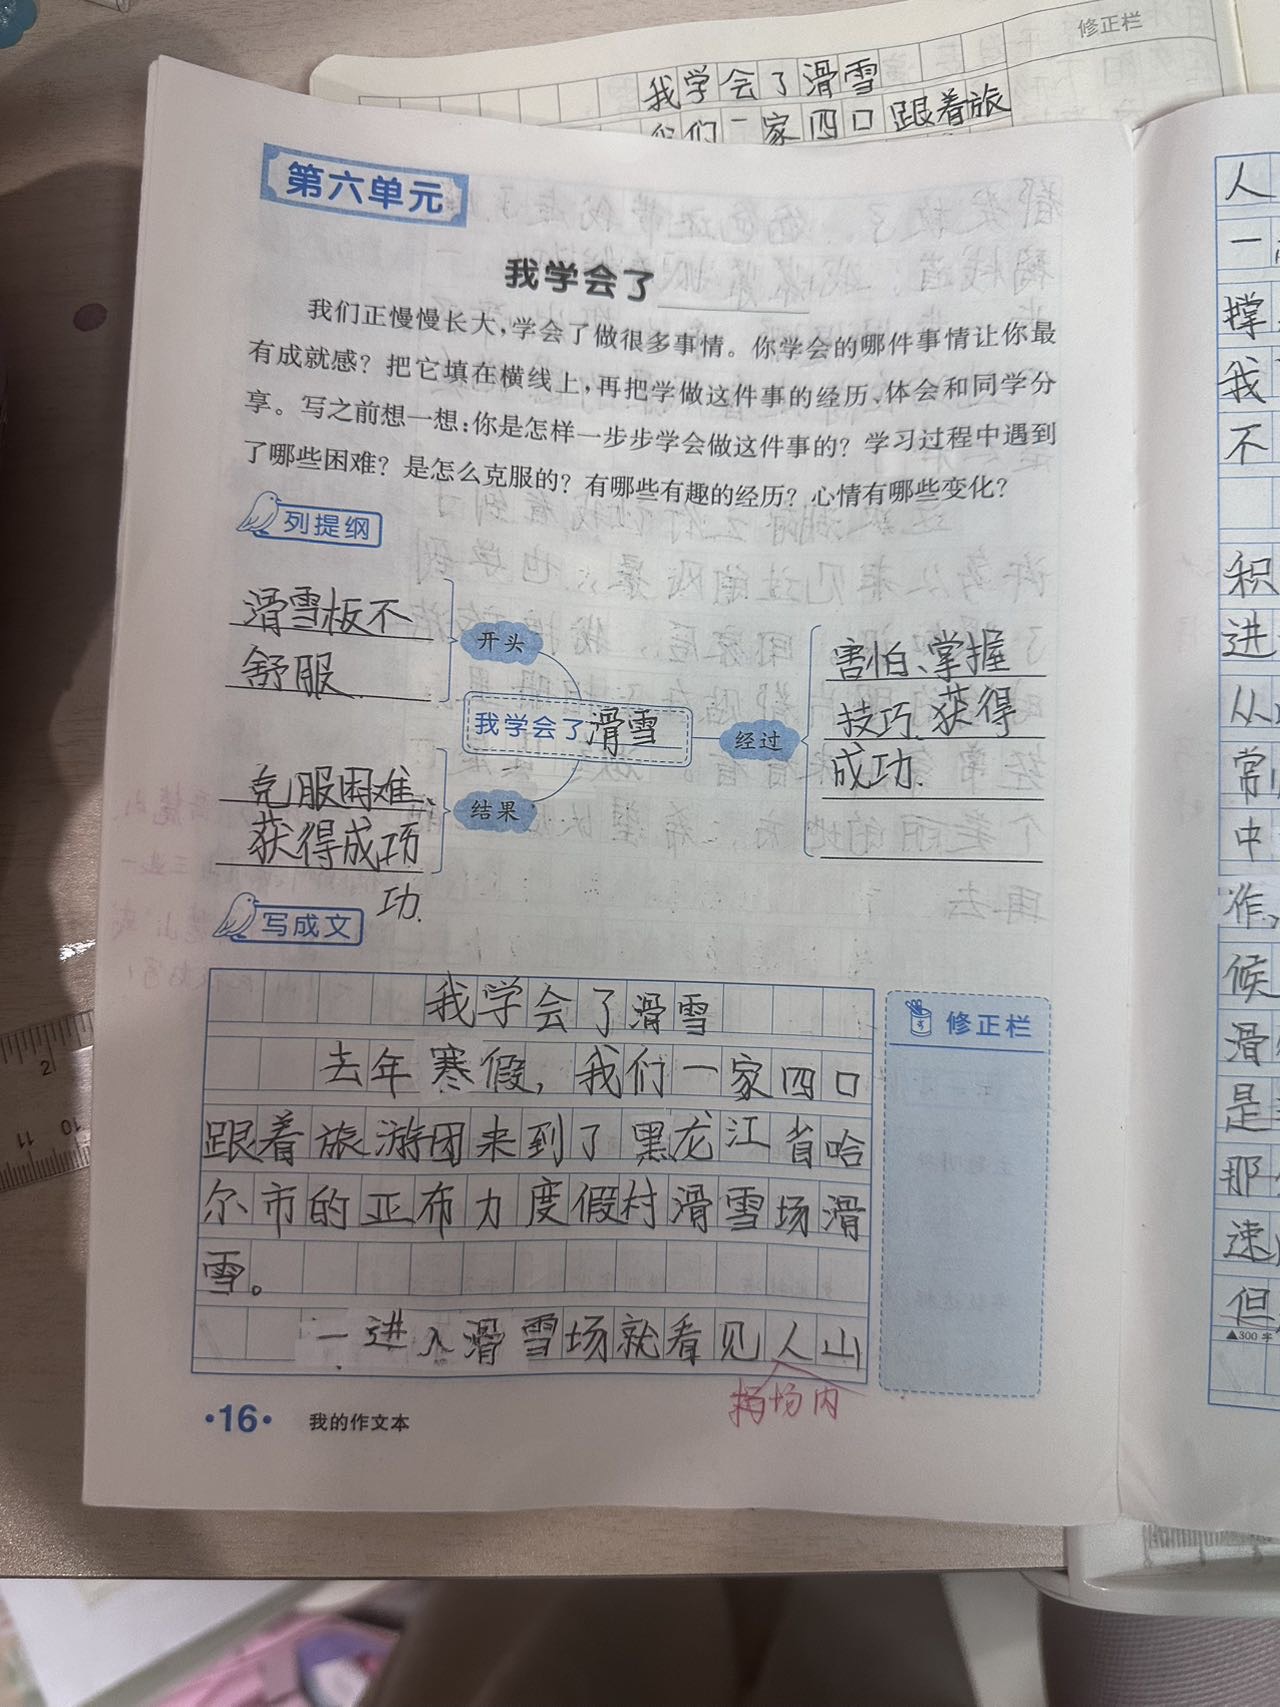 修正栏
我学会了滑雪
我们一家四口跟着旅
第六单元
我学会了
我们正慢慢长大，学会了做很多事情。你学会的哪件事情让你最
有成就感？把它填在横线上，再把学做这件事的经历、体会和同学分
享。写之前想一想：你是怎样一步步学会做这件事的？学习过程中遇到
了哪些困难？是怎么克服的？有哪些有趣的经历？心情有哪些变化？
列提纲
滑雪板不
舒服
开头
我学会了滑雪
经过
害怕、掌握
技巧、获得
成功.
克服困难、
获得成功
功.
结果
写成文
我学会了滑雪
去年寒假，我们一家四口
跟着旅游团来到了黑龙江省哈
尔市的亚布力度假村滑雪场滑
雪。
一进入滑雪场就看见人山
场内
修正栏
·16·
我的作文本
人
一
撑
我
不
积
进
从
常
中
作,
候
滑
是
那
速
但
▲300字